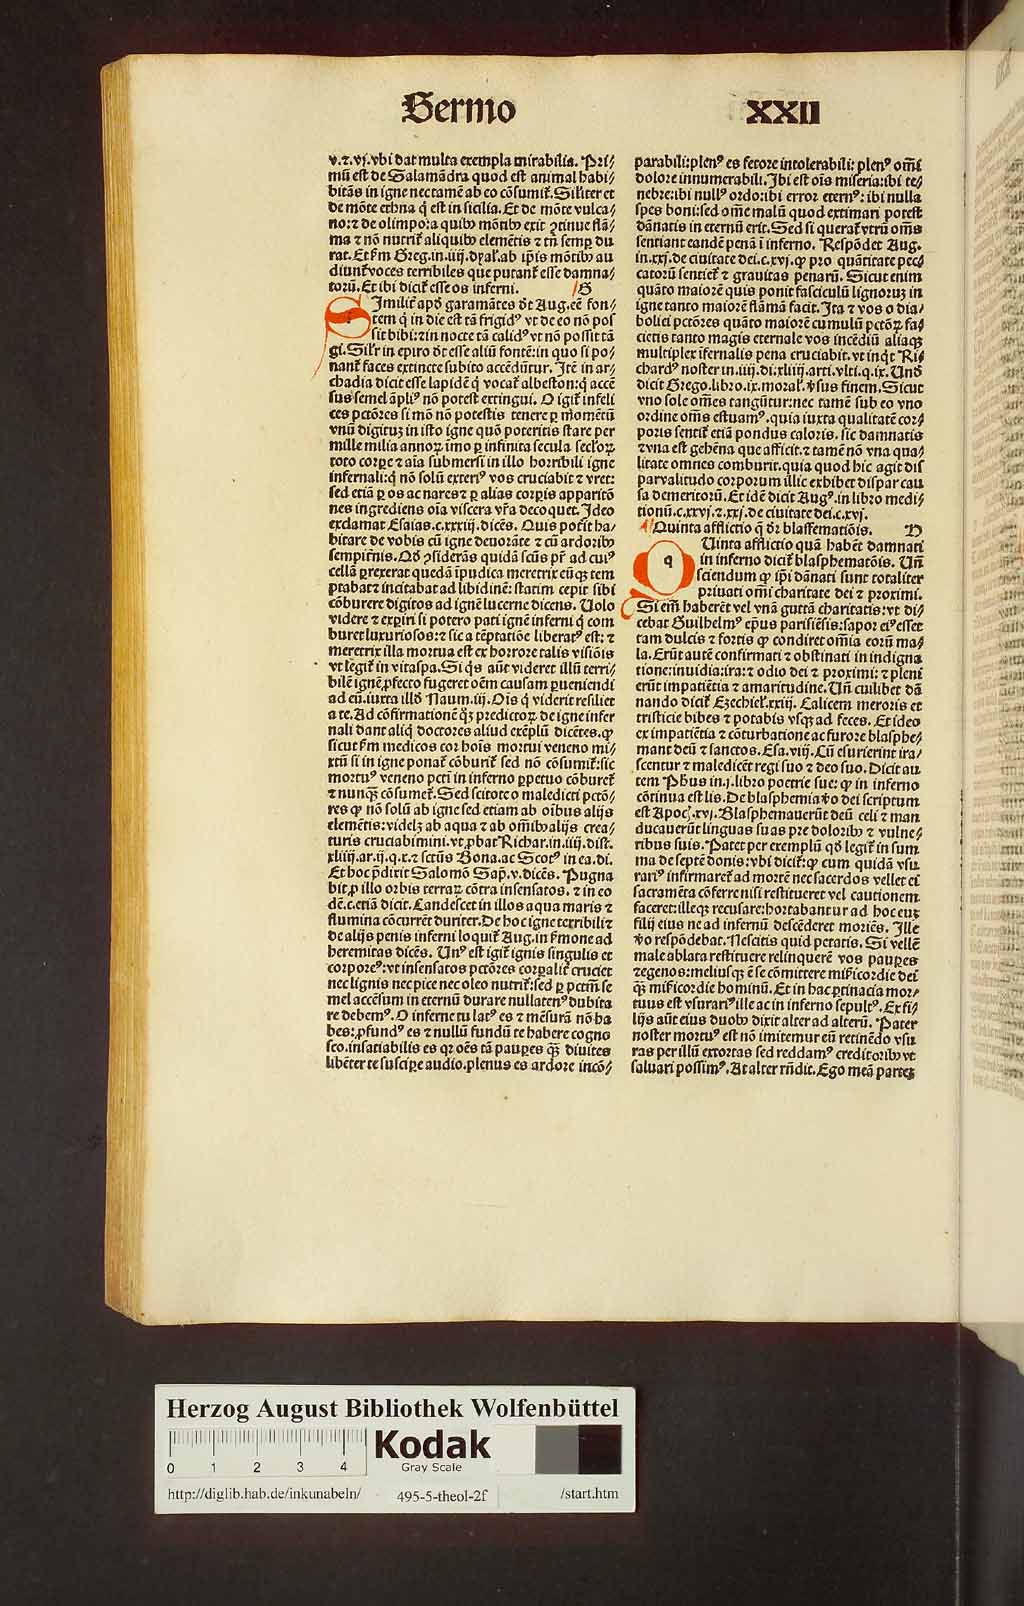 Sermo XXII
v.⁊.vj.vbi dat multa exempla mirabilia. Pri/
mū est de Salamādra quod est animal habi/
tās in igne nec tamē ab eo cōsumit̃. Sil̃iter et
de mōte ethna q̇ est in sicilia. Et de mōte vulca/
no:⁊ de olimpo:a quibꝰ mōtibꝰ exit ꝯtinue flā/
ma ⁊ nō nutrit̃ aliquibꝰ elemētis ⁊ tñ semꝑ du
rat. Et ẜm Greg.in.iiij.dyal̃.ab ip̄is mōtibꝰ au
diunt̃ voces terribiles que putant̃ esse damna/
torū. Et ibi dicit̃ esse os inferni. G
Similit̃ apđ garamātes đt Aug.eē fon/
tem q̇ in die est tā frigidꝰ vt de eo nō pos
sit bibi:⁊ in nocte tā calidꝰ vt nō possit tā
gi. Sil̃r in epiro đt esse aliū fontē:in quo si po/
nant̃ faces extincte subito accēdūtur. Itē in ar/
chadia dicit esse lapidē q̇ vocat̃ albeston:q̇ accē
sus semel āpliꝰ nō potest extingui. O igit̃ infeli
ces pctōres si mō nō potestis tenere ꝑ momētū
vnū digituꝫ in isto igne quō poteritis stare per
mille milia annoꝝ imo ꝑ infinita secula secl̃oꝝ
toto corꝑe ⁊ aīa submersi in illo horribili igne
infernali:q̇ nō solū exteriꝰ vos cruciabit ⁊ vret:
sed etiā ꝑ os ac nares ⁊ ꝑ alias corꝑis apparitō
nes ingrediens oīa viscera vr̄a decoquet. Ideo
exclamat Esaias.c.xxxiij.dicēs. Quis poťit ha/
bitare de vobis cū igne deuorāte ⁊ cū ardoribꝰ
sempit̃nis. Qđ ꝯsiderās quidā scūs pr̃ ad cuiꝰ
cellā ꝑrexerat quedā īpudica meretrix eūqꝫ tem
ptabat ⁊ incitabat ad libidinē: statim cepit sibi
cōburere digitos ad ignē lucerne dicens. Uolo
videre ⁊ exꝑiri si potero pati ignē inferni q̇ com
buret luxuriosos:⁊ sic a tēptatiōe liberatꝰ est: ⁊
meretrix illa mortua est ex horrore talis visiōis
vt legit̃ in vitaspa. Si q̇s aūt videret illū terri/
bilē ignē ꝓfecto fugeret oēm causam ꝑueniendi
ad eū.iuxta illđ Naum.iij. Oīs q̇ viderit resiliet
a te. Ad cōfirmationē qꝫ predictoꝝ de igne infer
nali dant aliq̇ doctores aliud exēplū dicētes. ꝙ
sicut ẜm medicos cor hoīs mortui veneno mi/
xtū si in igne ponat̃ cōburit̃ sed nō cōsumit̃:sic
mortuꝰ veneno pctī in inferno ꝑpetuo cōburet̃
⁊ nunqꝫ cōsumet̃. Sed scitote o maledicti pctō/
res ꝙ nō solū ab igne sed etiam ab oībus alijs
elemētis:videlꝫ ab aqua ⁊ ab om̄ibꝰ alijs crea/
turis cruciabimini.vt ꝓbat Richar.in.iiij.dist.
xliiij.ar.ij.q.x.⁊ sctūs Bona.ac Scotꝰ in ea.di.
Et hoc p̄dixit Salomō Sap̄.v.dicēs. Pugna
bit ꝓ illo orbis terraꝝ cōtra insensatos. ⁊ in eo
dē.c.etiā dicit. Candescet in illos aqua maris ⁊
flumina cōcurrēt duriter. De hoc igne terribili ⁊
de alijs penis inferni loquit̃ Aug.in ẜmone ad
heremitas dicēs. Unꝰ est igit̃ ignis singulis et
corporeꝰ:vt insensatos pctōres corꝑalit̃ cruciet
nec lignis nec pice nec oleo nutrit̃:sed ꝑ pctm̄ se
mel accēsum in eternū durare nullatenꝰ dubita
re debemꝰ. O inferne tu latꝰ es ⁊ mēsurā nō ha
bes:ꝓfundꝰ es ⁊ nullū fundū te habere cogno
sco.insatiabilis es qꝛ oēs tā pauꝑes qꝫ diuites
libēter te susciꝑe audio.plenus es ardore incō/
parabili:plenꝰ es fetore intolerabili: plenꝰ om̄i
dolore innumerabili. Ibi est oīs miseria:ibi te/
nebre:ibi nullꝰ ordo:ibi error eternꝰ: ibi nulla
spes boni:sed om̄e malū quod extimari potest
dānatis in eternū erit. Sed si querat̃ vtrū om̄s
sentiant eandē penā ī inferno. Respōdet Aug.
in.xxj.de ciuitate dei.c.xvj.ꝙ pro quātitate pec/
catorū sentiet̃ ⁊ grauitas penarū. Sicut enim
quāto maiorē quis ponit fasciculū lignoruꝫ in
igne tanto maiorē flāmā facit. Ita ⁊ vos o dia/
bolici pctōres quāto maiorē cumulū pctōꝝ fa/
cietis tanto magis eternale vos incēdiū aliaqꝫ
multiplex īfernalis pena cruciabit.vt inq̇t Ri/
chardꝰ noster in.iiij.di.xliiij.arti.vlti.q.ix. Unđ
dicit Grego.libro.ix.moral̃.ꝟsus finem. Sicut
vno sole om̄es tangūtur:nec tamē sub eo vno
ordine om̄s estuamꝰ.quia iuxta qualitatē cor/
poris sentit̃ etiā pondus caloris. sic damnatis
⁊ vna est gehēna que afficit.⁊ tamē nō vna qua/
litate omnes comburit.quia quod hic agit dis
parvalitudo corporum illic exhibet dispar cau
sa demeritorū. Et idē dicit Augꝰ.in libro medi/
tionū.c.xxvj.⁊.xxj.de ciuitate dei.c.xvj.
Quinta afflictio q̇ đr blassematiōis. H
Quinta afflictio quā habēt damnati
in inferno dicit̃ blasphematōis. Uñ
sciendum ꝙ ip̄i dānati sunt totaliter
priuati om̄i charitate dei ⁊ proximi.
Si em̄ haberēt vel vnā guttā charitatis:vt di/
cebat Guilhelmꝰ ep̄us parisiēsis:sapor eiꝰ esset
tam dulcis ⁊ fortis ꝙ condiret om̄ia eorū ma/
la. Erūt autē confirmati ⁊ obstinati in indigna
tione:inuidia:ira:⁊ odio dei ⁊ proximi: ⁊ pleni
erūt impatiētia ⁊ amaritudine. Uñ cuilibet dā
nando dicit̃ Ezechiel̃.xxiij. Calicem meroris et
tristicie bibes ⁊ potabis vsqꝫ ad feces. Et ideo
ex impatiētia ⁊ cōturbatione ac furore blasphe/
mant deū ⁊ sanctos. Esa.viij. Cū esurierint ira/
scentur ⁊ maledicēt regi suo ⁊ deo suo. Dicit au
tem Pħus in.j.libro poetrie sue: ꝙ in inferno
cōtinua est lis. De blasphemia ꝟo dei scriptum
est Apoc̃.xvj. Blasphemauerūt deū celi ⁊ man
ducauerūt linguas suas pre doloribꝰ ⁊ vulne/
ribus suis. Patet per exemplū qđ legit̃ in sum
ma de septē donis: vbi dicit̃: ꝙ cum quidā vsu
rariꝰ infirmaret̃ ad mortē nec sacerdos vellet ei
sacramēta cōferre nisi restitueret vel cautionem
faceret:illeqꝫ recusare:hortabantur ad hoc euꝫ
filij eius ne ad infernū descēderet moriēs. Ille
ꝟo respōdebat. Nescitis quid petatis. Si vellē
male ablata restituere relinquerē vos pauꝑes
⁊ egenos:meliusqꝫ ē se cōmittere mīs̃icordie dei
qꝫ mīs̃icordie hominū. Et in hac ꝑtinacia mor/
tuus est vsurariꝰ ille ac in inferno sepultꝰ. Ex fi/
lijs aūt eius duobꝰ dixit alter ad alterū. Pater
noster mortuꝰ est nō imitemur eū retinēdo vsu
ras per illū extortas sed reddamꝰ creditoribꝰ vt
saluari possimꝰ. At alter rn̄dit. Ego meā partē
Herzog August Bibliothek Wolfenbüttel
0 1 2 3 4
Kodak
Gray Scale
http://diglib.hab.de/inkunabeln/ 495-5-theol-2f /start.htm